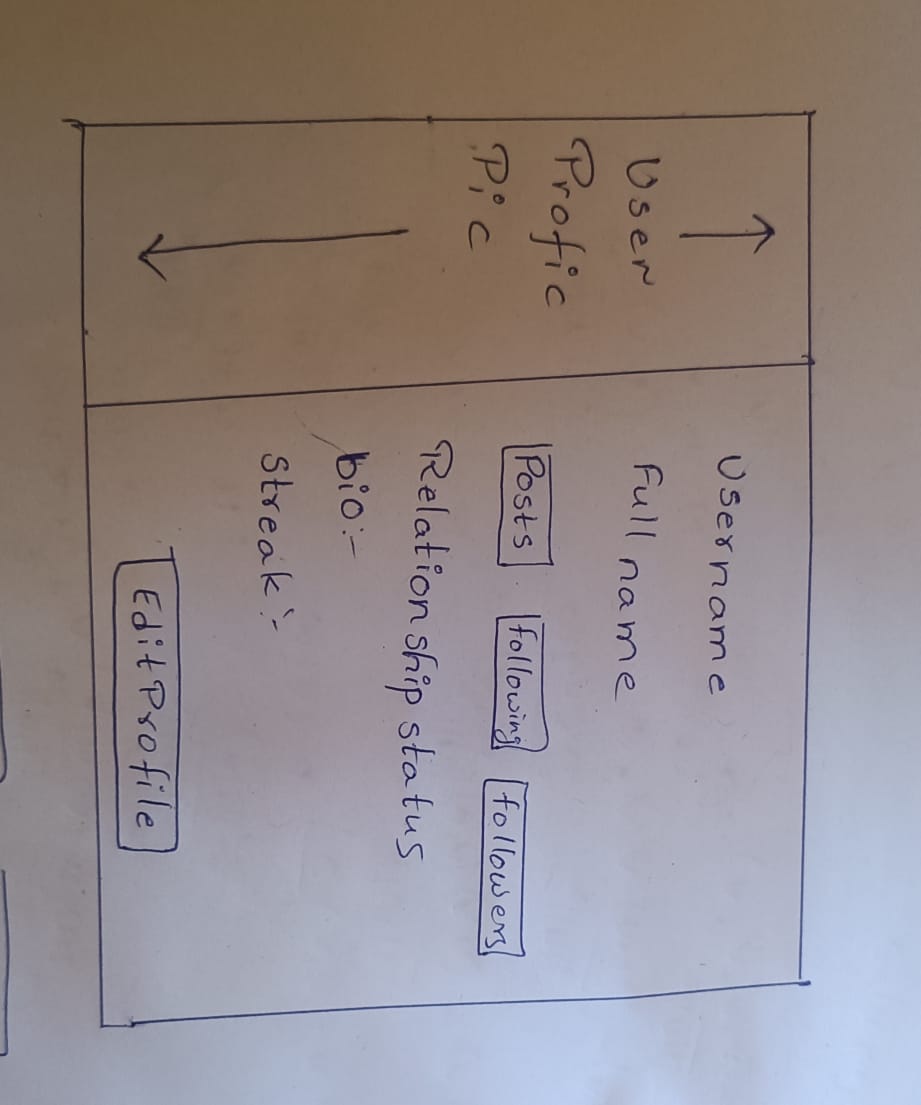 User
Profic
Pic
Username
Full name
Posts following followers
Relationship status
bio:-
Streak:-
Edit Profile